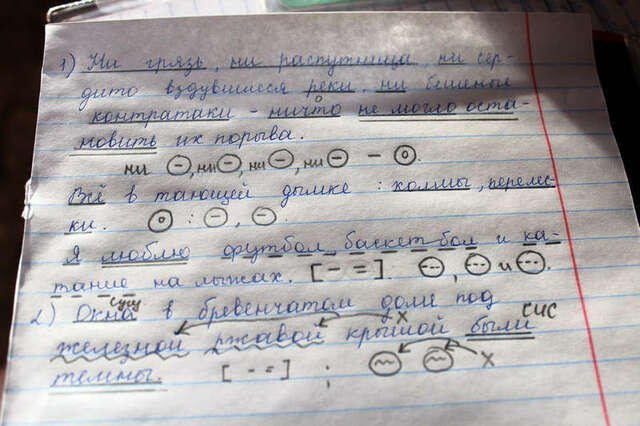 1) Ни грязь, ни распутница, ни сер-
дито вздувшиеся реки, ни бешеные
контратаки - ничто не могло оста-
новить их порыва.
ни ⊖, ни ⊖, ни ⊖, ни ⊖ - ⊙.
Всё в тающей дымке : холмы, перелес-
ки. ⊙ : ⊖, ⊖.
Я люблю футбол, баскетбол и ка-
тание на лыжах. [- =] ⊖, ⊖ и ⊖.
сущ
2) Окна в бревенчатом доме под
х СИС
железной ржавой крышой были
темны. [- =] ; х